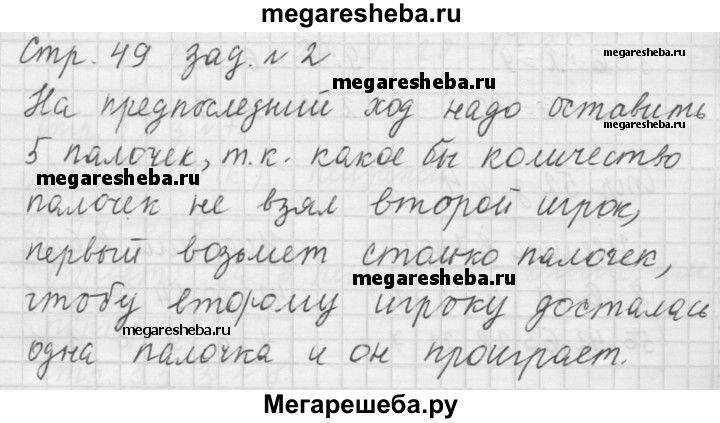 megaresheba.ru
Стр. 49 зад. № 2
megaresheba.ru
megaresheba.ru
На предпоследний ход надо оставить
megaresheba.ru
5 палочек, т.к. какое бы количество
megaresheba.ru
палочек не взял второй игрок,
первый возьмет столько палочек,
megaresheba.ru
чтобы второму игроку досталась
megaresheba.ru
одна палочка и он проиграет.
Мегарешеба.ру